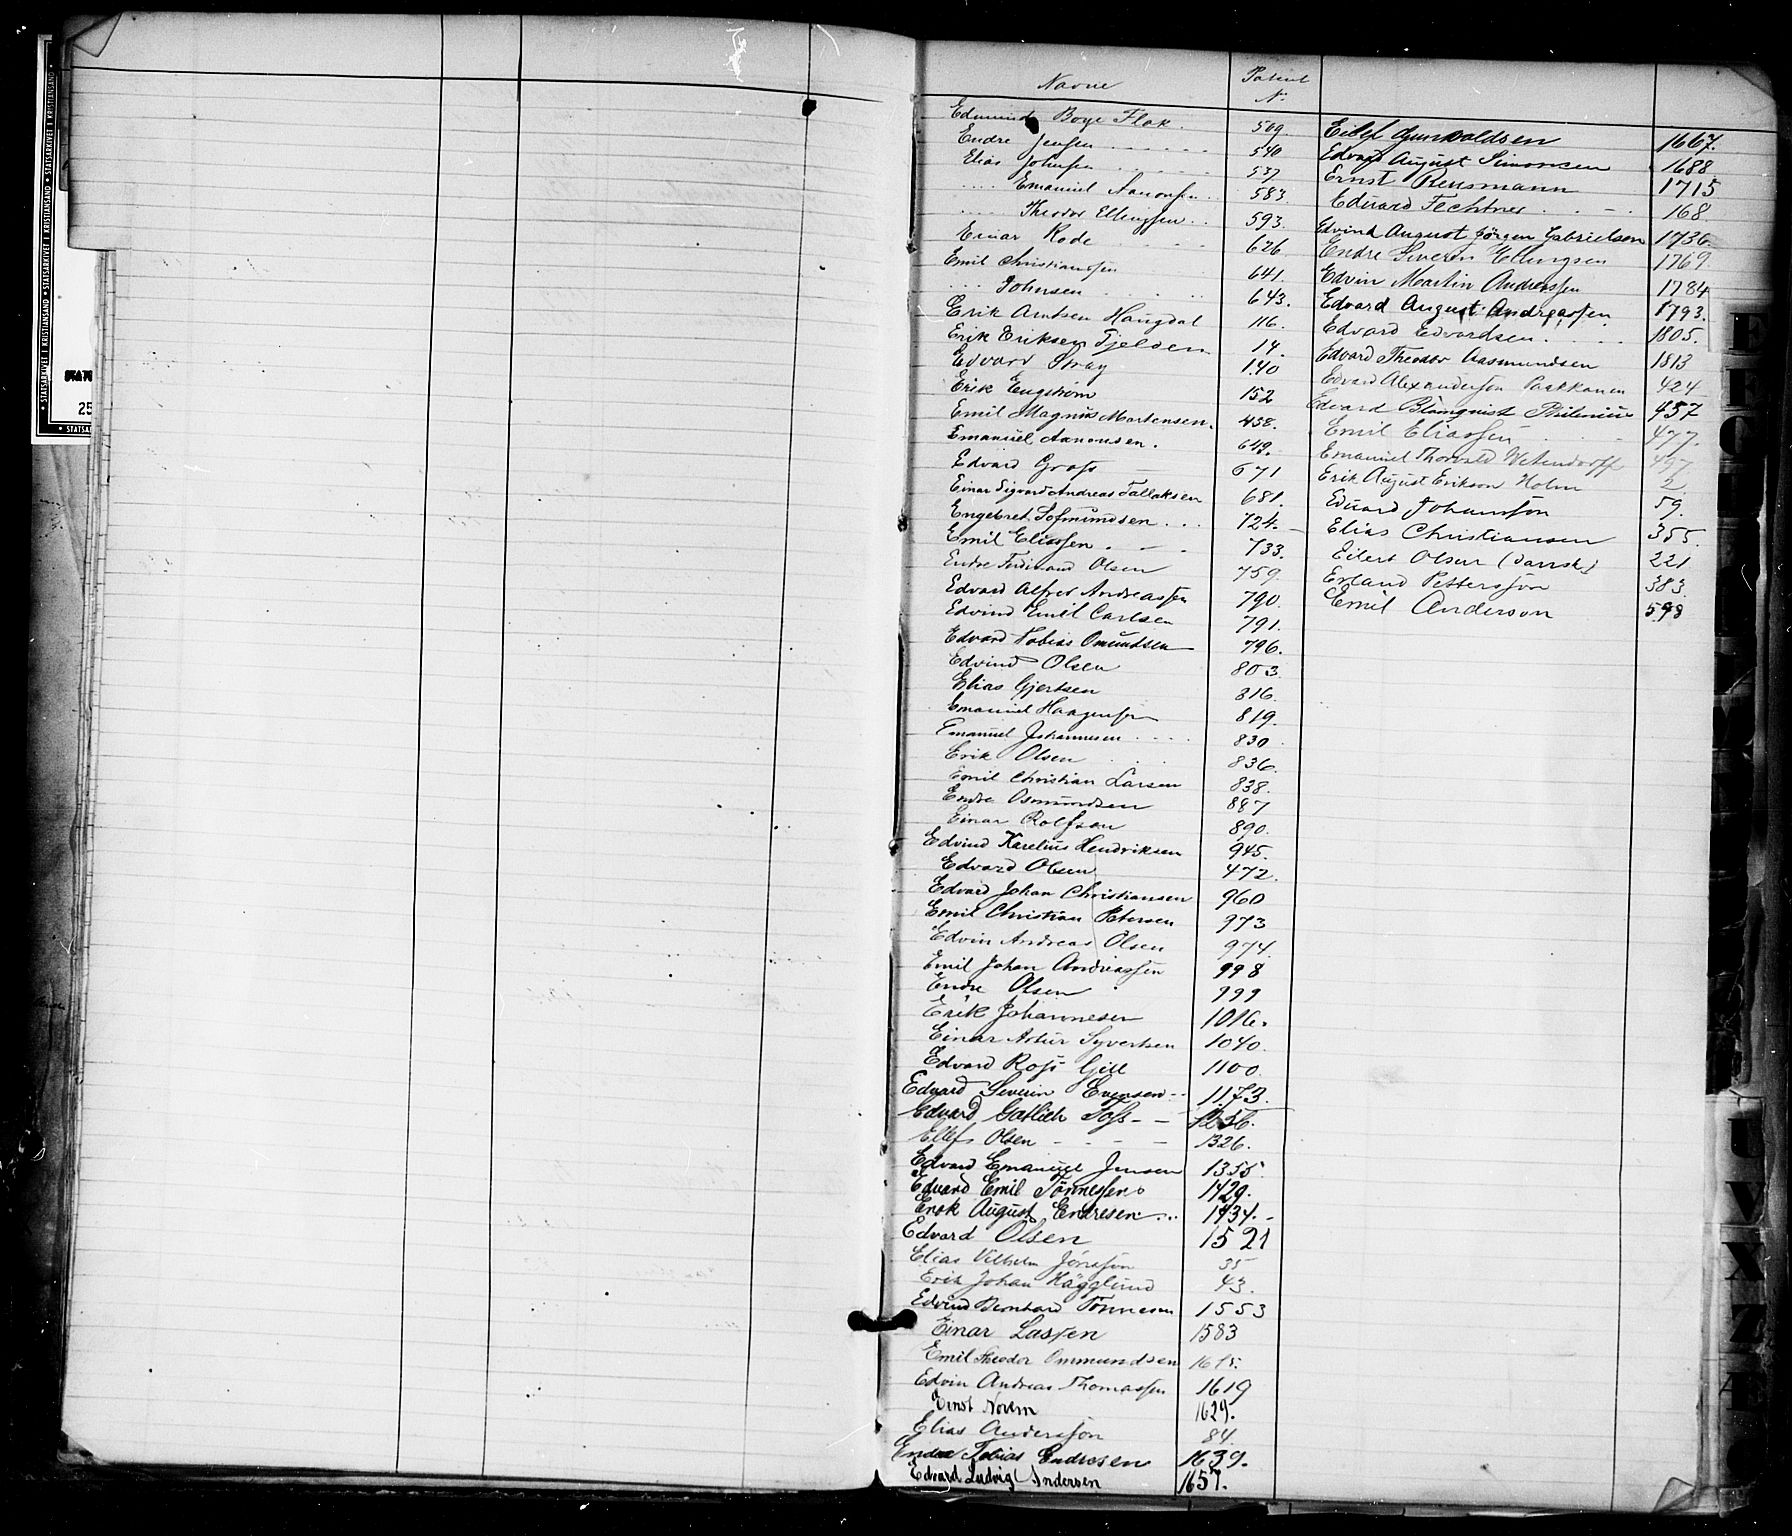 Navne Patent N.
Edmund Boye Flak. 509.
Endre Jensen 540
Elias Johnsen 537
Emanuel Aanonsen 583
Theodor Ellingsen 593.
Einar Rode 626
Emil Christianssen 641.
Johnsen 643.
Erik Arntsen Haugdal 116.
Erik Eriksen Tjelden 14.
Edvard Stray 140
Erik Engström 152
Emil Magnus Mortensen. 458.
Emanuel Aanonsen. 649.
Edvard Grass 671
Einar Sigvard Andreas Tallaksen 681.
Engebret Sofmundsen 724.
Emil Eliassen 733.
Endre Ferdinand Olsen 759.
Edvard Alfred Andreassen 790.
Edvind Emil Carlsen 791.
Edvard Tobias Omundsen 796.
Edvind Olsen 803
Elias Gjertsen 816.
Emanuel Haagensen 819.
Emanuel Johannesen 830.
Erik Olsen 836.
Emil Christian Larsen 838.
Endre Osmundsen 887
Einar Rolfsen 890.
Edvind Karelius Hendriksen 945.
Edvard Olsen 472.
Edvard Johan Christiansen 960
Emil Christian Petersen 973
Edvin Andreas Olsen 974.
Emil Johan Andreassen 998
Endre Olsen 999
Erik Johannesen 1016.
Einar Artur Syvertsen 1040.
Edvard Ross Gill 1100.
Edvard Severin Evensen 1173.
Edvard Gotlieb Toss 1256.
Ellef Olsen 1326.
Edvard Emanuel Jensen 1355
Edvard Emil Tönnessen 1429.
Erik August Endresen 1434.
Edvard Olsen 1521
Elias Vilhelm Jönsson 35
Erik Johan Hägglund 43.
Edvind Bernhard Tönnesen 1553
Einar Lassen 1583
Emil Theodor Ommundsen 1615.
Edvin Andreas Thomassen 1619
Ernst Norem 1629.
Elias Andersson 84.
Endre Tobias Endresen 1639.
Edvard Ludvig Andersen 1657.
Eilef Gunvaldsen 1667.
Edvard August Simonsen 1688
Ernst Rensmann 1715
Eduard Fechtner 168.
Edvind August Jörgen Gabrielsen 1736.
Endre Severin Ellingsen 1769
Edvin Martin Andreassen 1784
Edvard August Andreassen 1793.
Edvard Edvardsen 1805.
Edvard Theodor Aasmundsen 1813
Edvard Alexandersson Paakkanen 424
Edvard Blomquist 457
Emil Eliassen 477.
Emanuel Thorvald 497
Erik August Erikson Holm 2
Eduard Johansson 59.
Elias Christiansen 355.
Eilert Olsen (dansk) 221
Erland Pettersson 383.
Emil Anderson 598
STATSARKIVET I KRISTIANSAND
25
E
U
V
X
Z